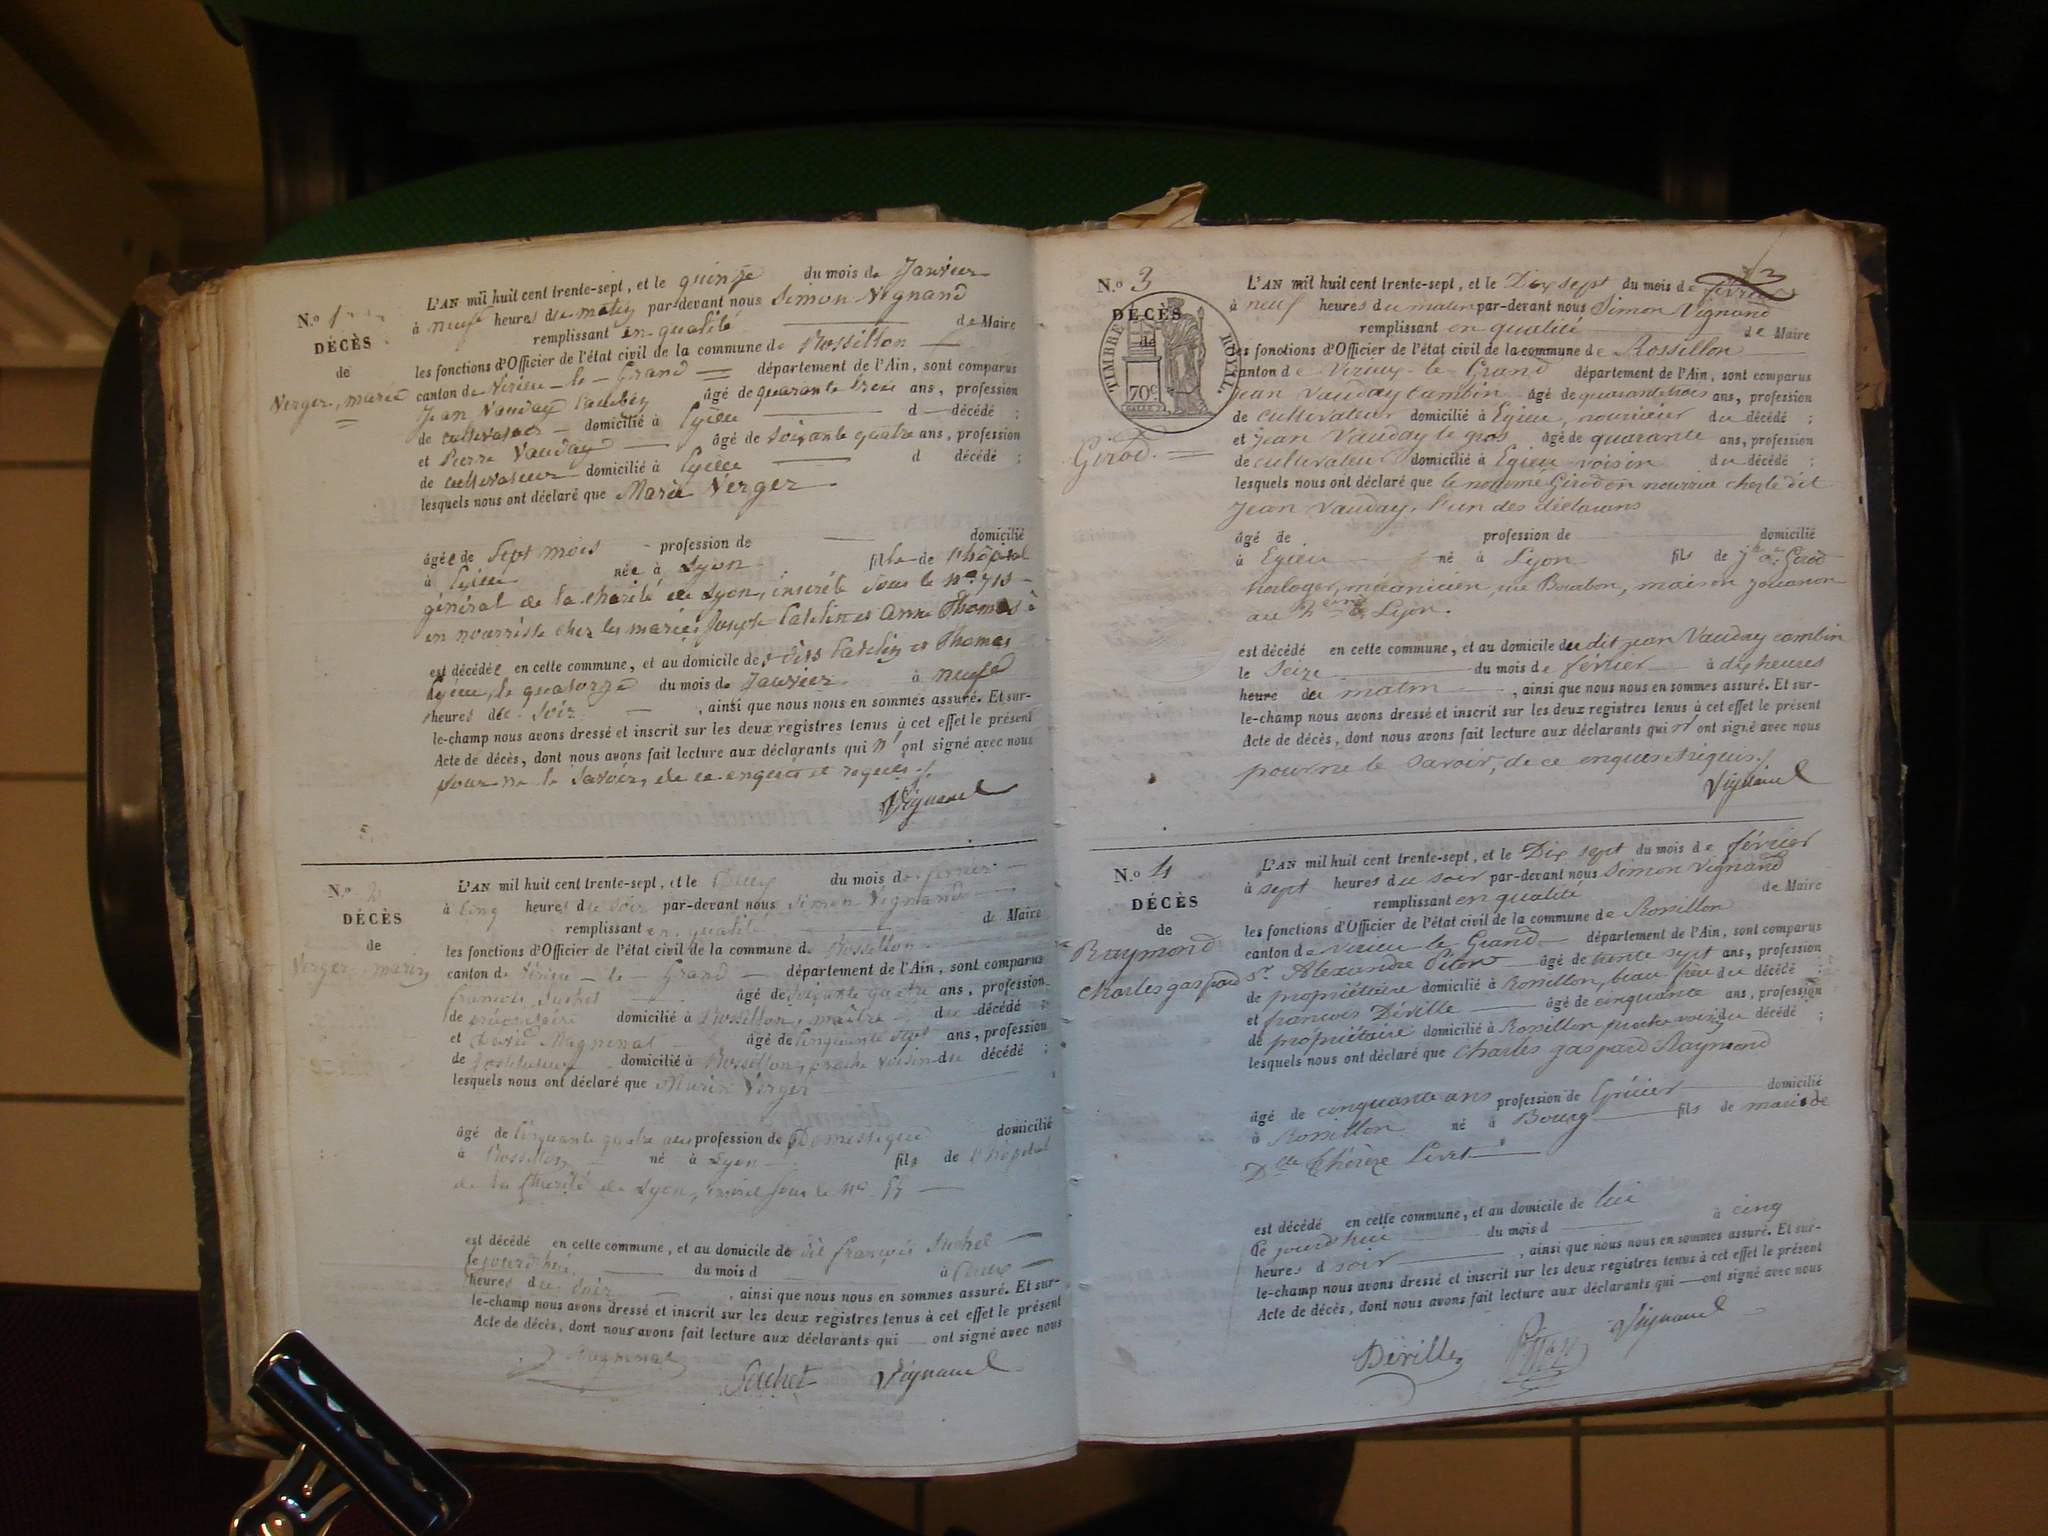 N.º 1
DÉCÈS
de
Verger, marie
L'AN mil huit cent trente-sept, et le quinze du mois de Janvier
à neuf heures du matin par-devant nous Simon Vignand
remplissant en qualité de Maire
les fonctions d'Officier de l'état civil de la commune de Rossillon
canton de Virieu-le-Grand département de l'Ain, sont comparus
Jean Vauday Cambin âgé de quarante trois ans, profession
de cultivateur domicilié à Egieu d décédé ;
et Pierre Vauday âgé de soixante quatre ans, profession
de cultivateur domicilié à Egieu d décédé ;
lesquels nous ont déclaré que Marie Verger
âgée de sept mois profession de domicilié
à Egieu née à Lyon fille de l'hôpital
général de la charité de Lyon, inscrite sous le nº 715
en nourrisse chez les mariés Joseph et anne Thomas à
est décédée en cette commune, et au domicile des dits et Thomas
Egieu, le quatorze du mois de Janvier à neuf
heures du soir , ainsi que nous nous en sommes assuré. Et sur-
le-champ nous avons dressé et inscrit sur les deux registres tenus à cet effet le présent
Acte de décès, dont nous avons fait lecture aux déclarants qui n'ont signé avec nous
pour ne le savoir, de ce enquis et requis ./.
Vignand
N.º 2
DÉCÈS
de
Verger, marin
L'AN mil huit cent trente-sept, et le du mois de fevrier
à cinq heures du soir par-devant nous Simon Vignand
remplissant en qualité de Maire
les fonctions d'Officier de l'état civil de la commune de Rossillon
canton de Virieu-le-Grand département de l'Ain, sont comparus
françois Suchet âgé de soixante quatre ans, profession
de domicilié à Rossillon, maître du décédé
et Magninat âgé de cinquante sept ans, profession
de domicilié à Rossillon, proche voisin du décédé ;
lesquels nous ont déclaré que Marin Verger
âgé de cinquante quatre ans profession de Domestique domicilié
à Rossillon né à Lyon fils de l'hôpital
de la Charité de Lyon, inscrit sous le nº
est décédé en cette commune, et au domicile de dit françois Suchet
le jourd'hui du mois d à
heures du soir , ainsi que nous nous en sommes assuré. Et sur-
le-champ nous avons dressé et inscrit sur les deux registres tenus à cet effet le présent
Acte de décès, dont nous avons fait lecture aux déclarants qui ont signé avec nous
Magninat Suchet Vignand
3
N.º 3
DÉCÈS
de
TIMBRE ROYAL
70c
Girod.
L'AN mil huit cent trente-sept, et le Dix sept du mois de fevrier
à neuf heures du matin par-devant nous Simon Vignand
remplissant en qualité de Maire
les fonctions d'Officier de l'état civil de la commune de Rossillon
canton de Virieu-le-Grand département de l'Ain, sont comparus
Jean Vauday Cambin âgé de quarante trois ans, profession
de cultivateur domicilié à Egieu, nourricier du décédé ;
et Jean Vauday le gros âgé de quarante ans, profession
de cultivateur domicilié à Egieu voisin du décédé ;
lesquels nous ont déclaré que le nommé Girod en nourrice chez le dit
Jean Vauday, l'un des déclarans
âgé de profession de domicilié
à Egieu né à Lyon fils de Girod
horloger, mécanicien, rue Bourbon, maison Jouanon
au Lyon.
est décédé en cette commune, et au domicile du dit Jean Vauday cambin
le Seize du mois de février à dix heures
heure du matin , ainsi que nous nous en sommes assuré. Et sur-
le-champ nous avons dressé et inscrit sur les deux registres tenus à cet effet le présent
Acte de décès, dont nous avons fait lecture aux déclarants qui n'ont signé avec nous
pour ne le savoir, de ce enquis et requis ./.
Vignand
N.º 4
DÉCÈS
de
Raymond
charles gaspard
L'AN mil huit cent trente-sept, et le Dix sept du mois de février
à sept heures du soir par-devant nous Simon Vignand
remplissant en qualité de Maire
les fonctions d'Officier de l'état civil de la commune de Rossillon
canton de Virieu le Grand département de l'Ain, sont comparus
Sr. Alexandre âgé de trente sept ans, profession
de propriétaire domicilié à Rossillon, beau frère du décédé ;
et françois Déville âgé de cinquante ans, profession
de propriétaire domicilié à Rossillon proche voisin du décédé ;
lesquels nous ont déclaré que Charles gaspard Raymond
âgé de cinquante ans profession de Gréfier domicilié
à Rossillon né à Bourg fils de mari de
Dlle Thérèze Livet
est décédé en cette commune, et au domicile de lui
le jourd'hui du mois d à cinq
heures d soir , ainsi que nous nous en sommes assuré. Et sur-
le-champ nous avons dressé et inscrit sur les deux registres tenus à cet effet le présent
Acte de décès, dont nous avons fait lecture aux déclarants qui ont signé avec nous
Déville Vignand